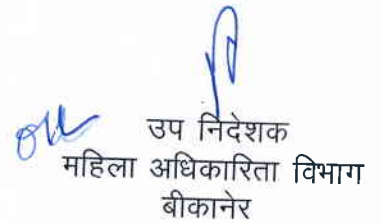 उप निदेशक
महिला अधिकारिता विभाग
बीकानेर